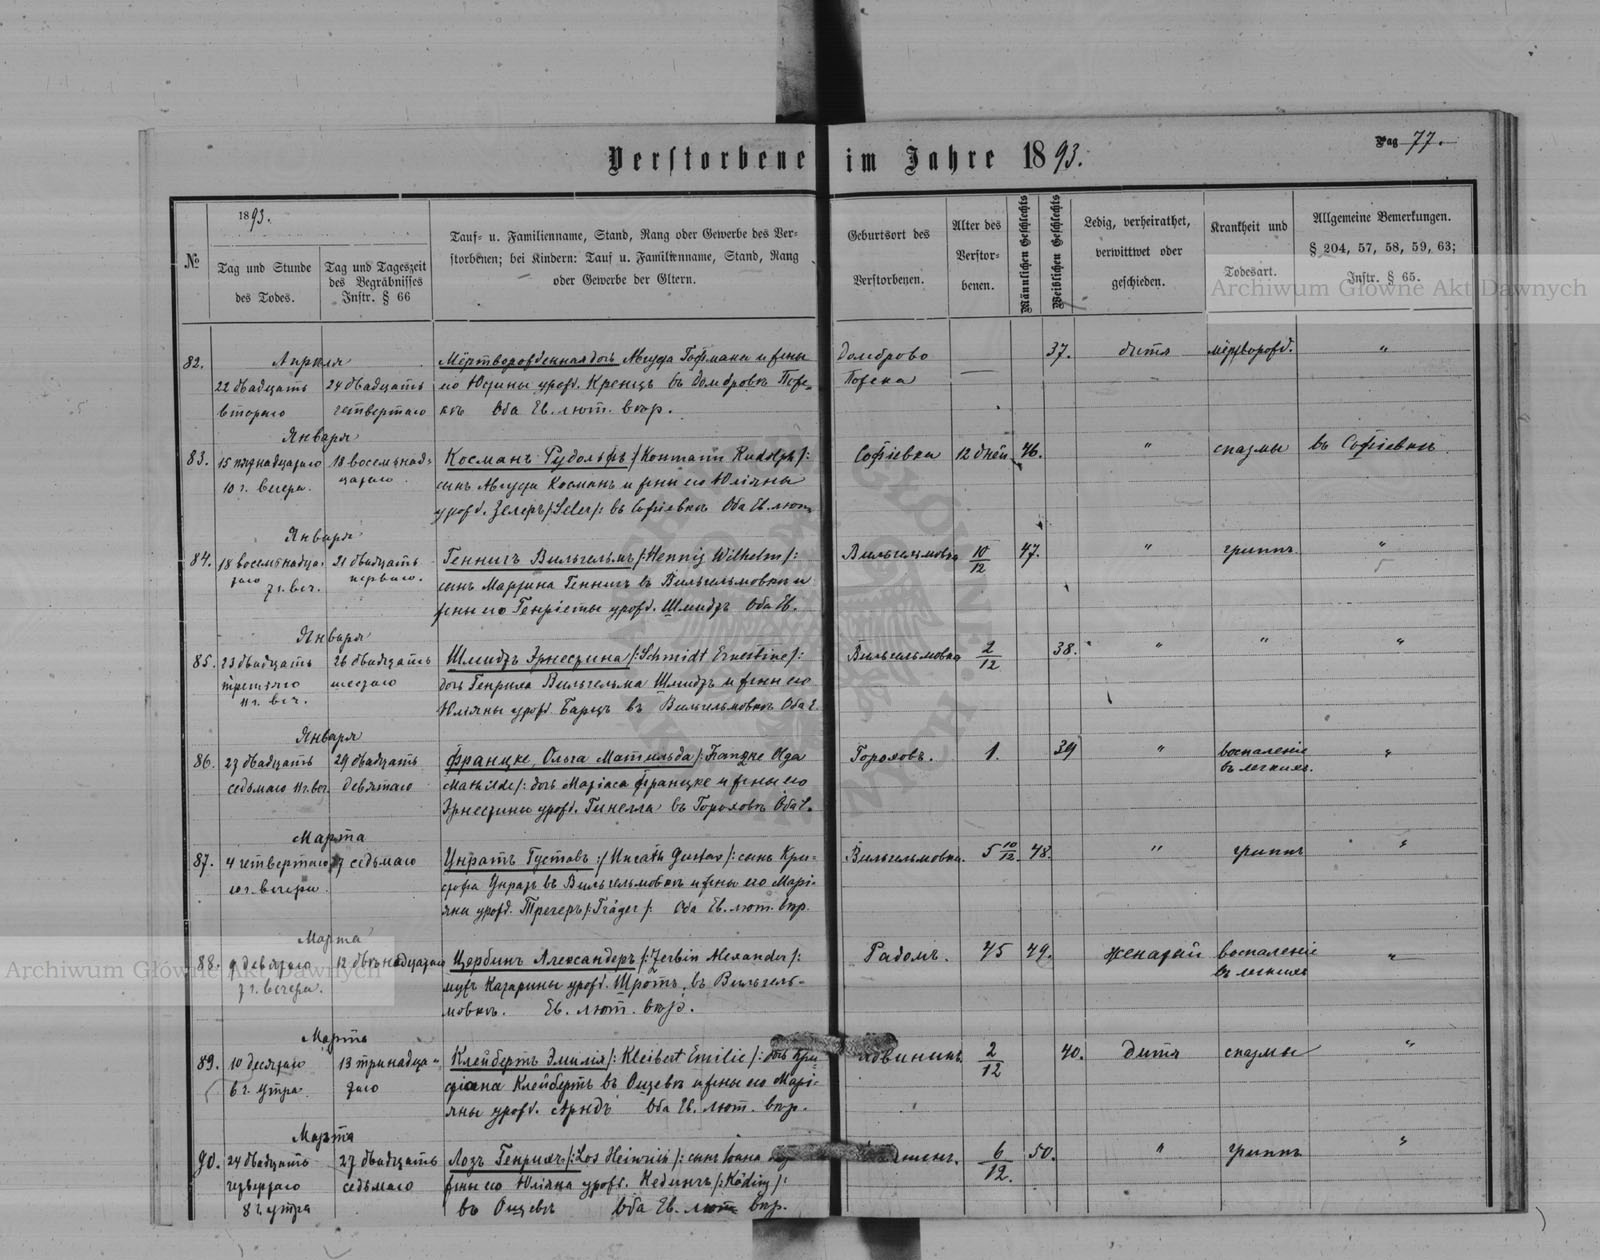 Verstorbene im Jahre 1893.
Pag 77.
№
1893.
Tag und Stunde
des Todes.
Tag und Tageszeit
des Begräbnisses
Instr. § 66
Tauf- u. Familienname, Stand, Rang oder Gewerbe des Ver-
storbenen; bei Kindern: Tauf u. Familienname, Stand, Rang
oder Gewerbe der Eltern.
Geburtsort des
Verstorbenen.
Alter des
Verstor-
benen.
Männlichen Geschlechts
Weiblichen Geschlechts
Ledig, verheirathet,
verwittwet oder
geschieden.
Krankheit und
Todesart.
Allgemeine Bemerkungen.
§ 204, 57, 58, 59, 63;
Instr. § 65.
Archiwum Główne Akt Dawnych
82.
Апреля
22 двадцать
втораго
24 двадцать
четвертаго
Мёртворожденная дочь Августа Гофмана и жены
его Юстины урожд. Кренцъ въ Домбровкѣ Позе=
Оба Ев. лют. вѣр.
Домброво
—
37.
дитя
мёртворожд.
"
83.
Января
15 пятнадцатаго
10 ч. вечера.
18 восемьнад=
цатаго
Косманъ Рудольфъ /: Kosmann Rudolph :/
сынъ Августа Косманъ и жены его Юліяны
урожд. Зелеръ /: Seler :/ въ Софіевкѣ Оба Ев. лют.
Софіевка
12 дней
46.
"
спазмы
въ Софіевкѣ
84.
Января
18 восемьнадца-
таго
7 ч. веч.
21 двадцать
перваго.
Геннигъ Вильгельмъ /: Hennig Wilhelm :/
сынъ Мартина Геннигъ въ Вильгельмовкѣ и
жены его Генріеты урожд. Шмидтъ Оба Ев.
Вильгельмовка
10/12
47.
"
гриппъ
"
85.
Января
23 двадцать
третьяго
11 ч. веч.
26 двадцать
шестаго
Шмидтъ Эрнестина /: Schmidt Ernestine :/
дочь Генриха Вильгельма Шмидтъ и жены его
Юліяны урожд. Барцъ въ Вильгельмовкѣ Оба Е.
Вильгельмовка
2/12
38.
"
"
"
86.
Января
27 двадцать
седьмаго 11 ч. веч.
29 двадцать
девятаго
Францке, Ольга Матильда /: Franzke Olga
Mathilde :/ дочь Францке и жены его
Эрнестины урожд. Гинелла въ Гороховѣ Оба Е.
Гороховъ.
1.
39
"
воспаленіе
въ легкихъ.
"
87.
Марта
4 четвертаго
10 ч. вечера
7 седьмаго
Унратъ Густавъ :/ Unrath Gustav /: сынъ Кри-
стофа Унратъ въ Вильгельмовкѣ и жены его Марі-
яны урожд. Трегеръ /: Träger /: Оба Ев. лют. вѣр.
Вильгельмовка.
5 10/12
48.
"
гриппъ
"
88.
Марта
9 девятаго
7 ч. вечера.
12 двѣнадцатаго
Щербинъ Александеръ /: Zerbin Alexander /:
мужъ Катарины урожд. Шротъ, въ Вильгель-
мовкѣ. Ев. лют. вѣр.
Радомъ.
75
49.
женатый
воспаленіе
въ легкихъ
"
Archiwum Główne Akt Dawnych
89.
Марта
10 десятаго
6 ч. утра.
13 тринадца-
таго
Клейбертъ Эмилія /: Kleibert Emilie /: дочь Кри-
стіана Клейбертъ въ Ощевѣ и жены его Марі-
яны урожд. Арндъ Оба Ев. лют. вѣр.
2/12
40.
Дитя
спазмы
"
90.
Марта
24 двадцать
четвертаго
8 ч. утра
27 двадцать
седьмаго
Лозъ Генрихъ /: Los Heinrich /: сынъ Іоана
жены его Юліяна урожд. Кедингъ /: Käding /:
въ Ощевѣ Оба Ев. лют. вѣр.
6/12.
50.
"
гриппъ
"